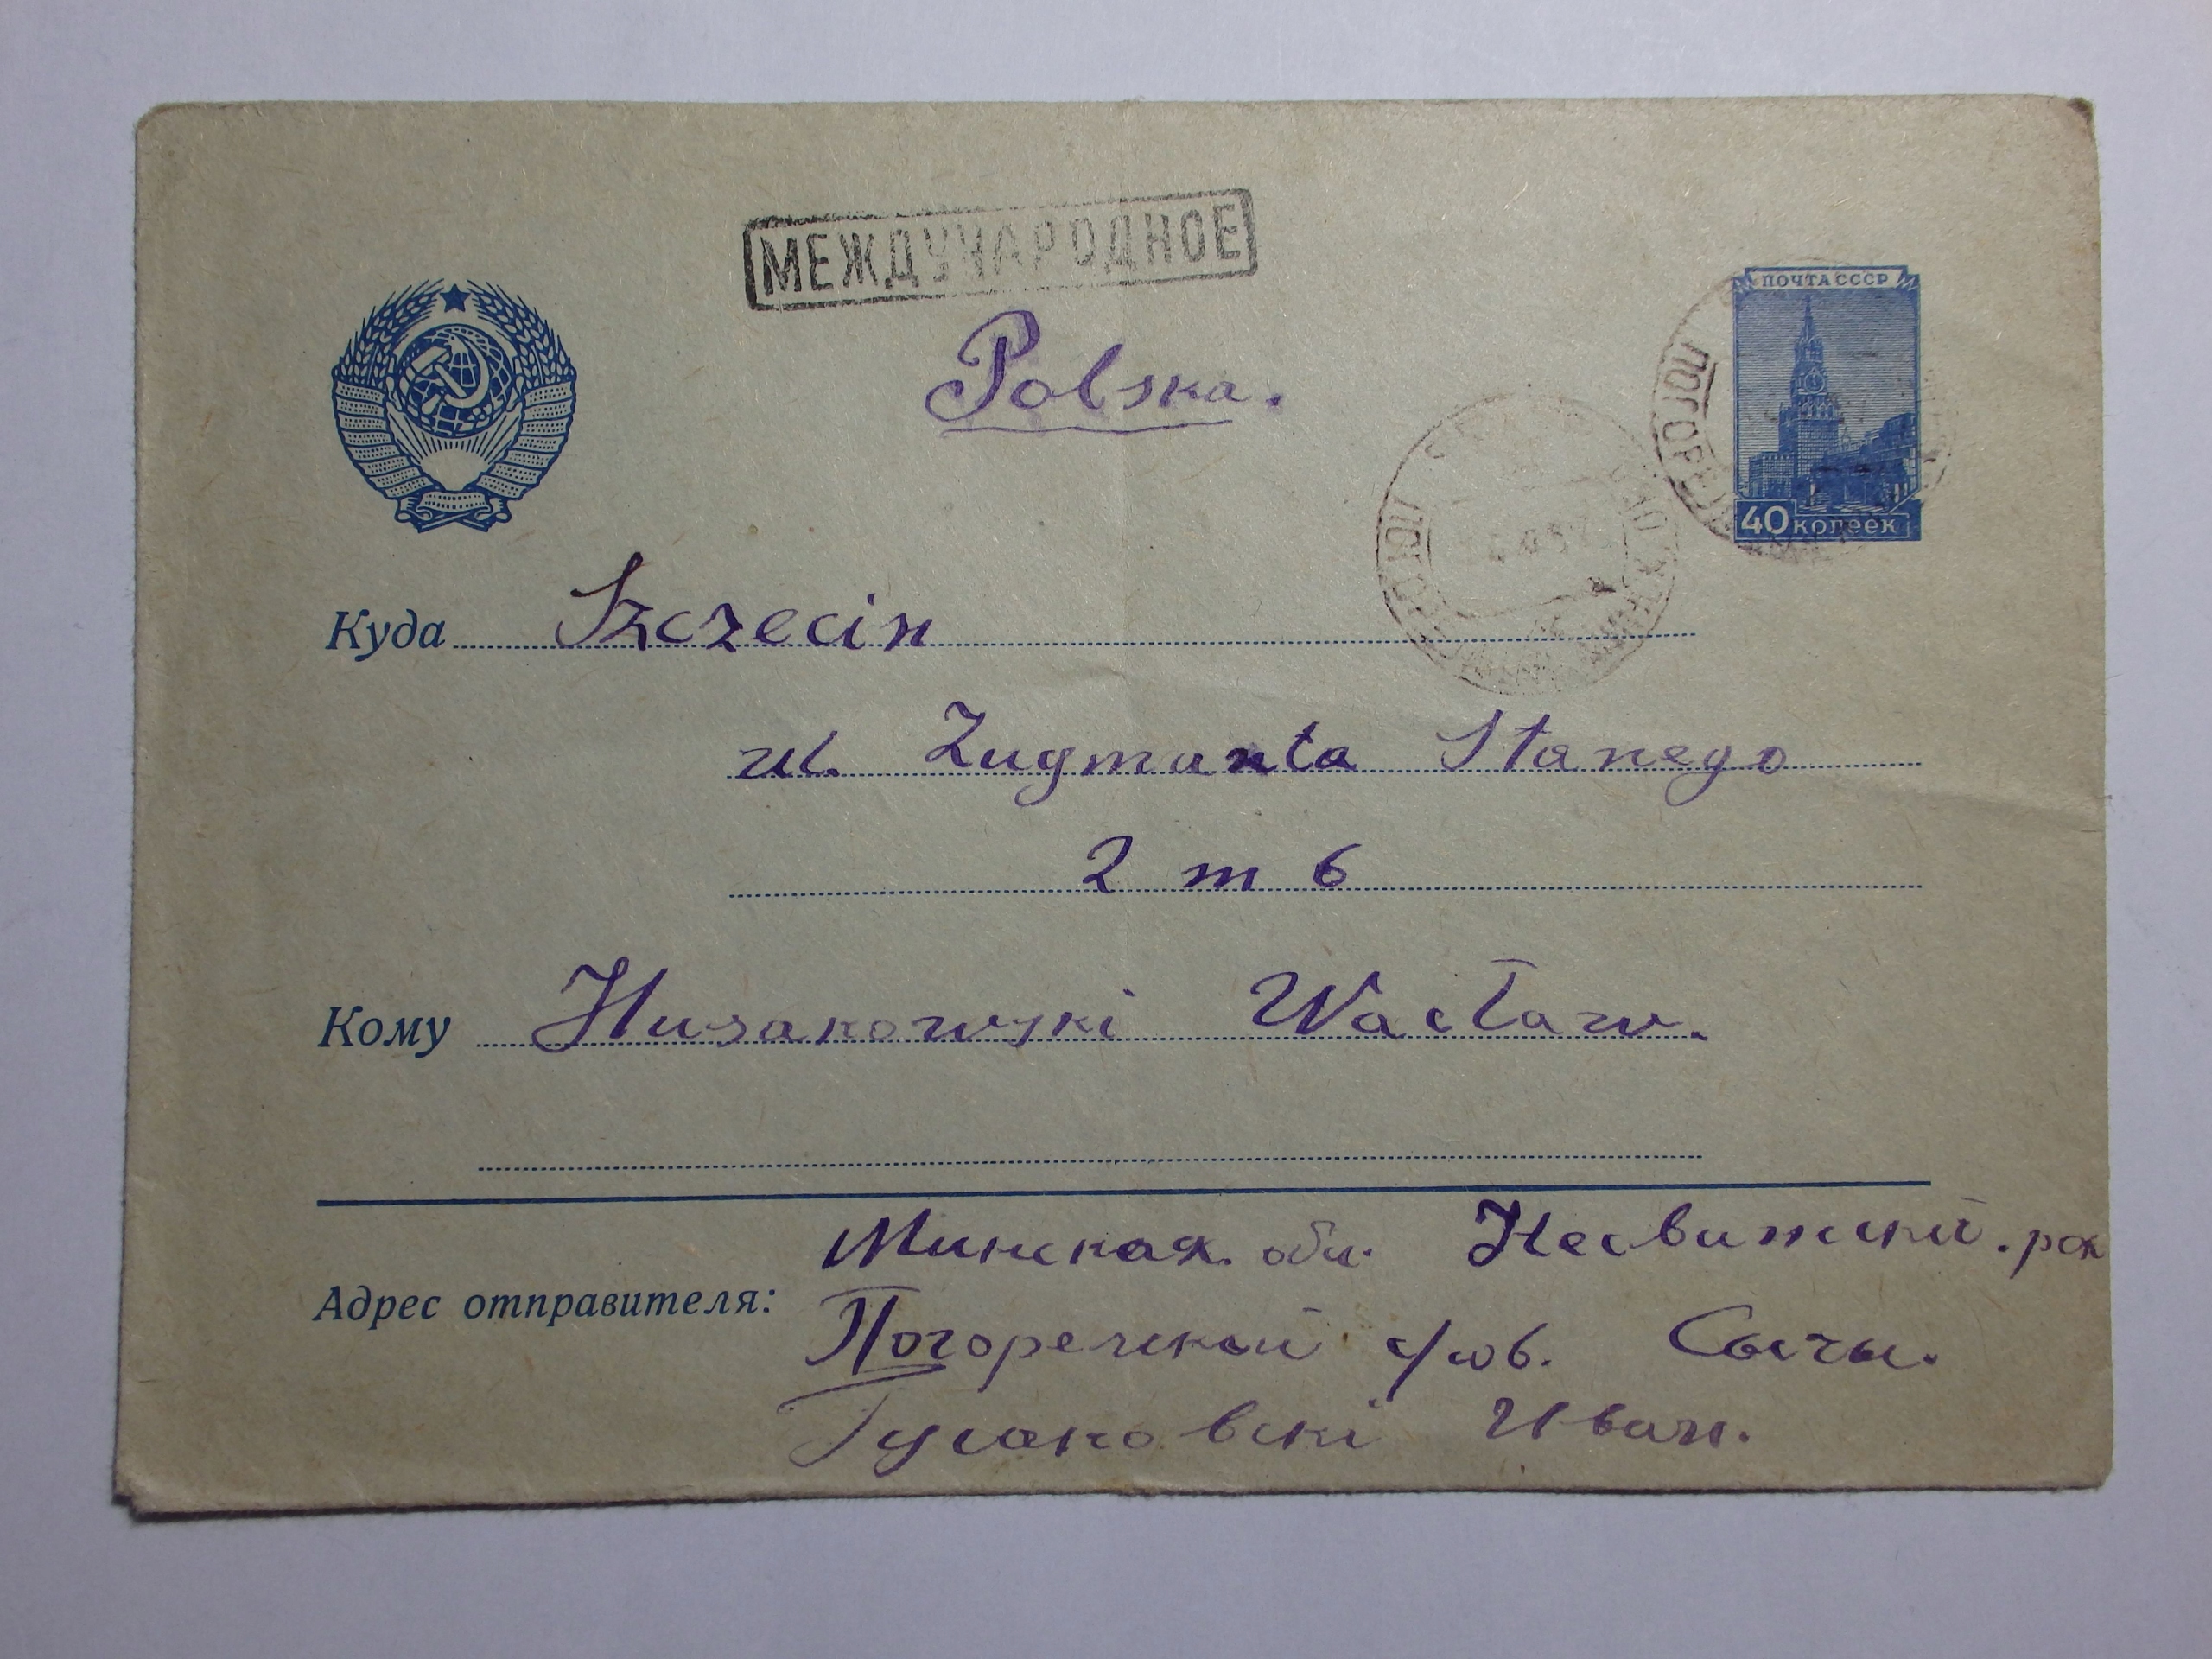 МЕЖДУНАРОДНОЕ
ПОЧТА СССР
Polska.
ПОГОРЕ
40 копеек
Куда Szczecin
ul. Zugmunta Starego
2 m 6
Кому Husakowski Wacław.
Минская обл. Несвижский. рон
Адрес отправителя:
Погорельский с/сов. Сычи.
Гусаковскі Иван.